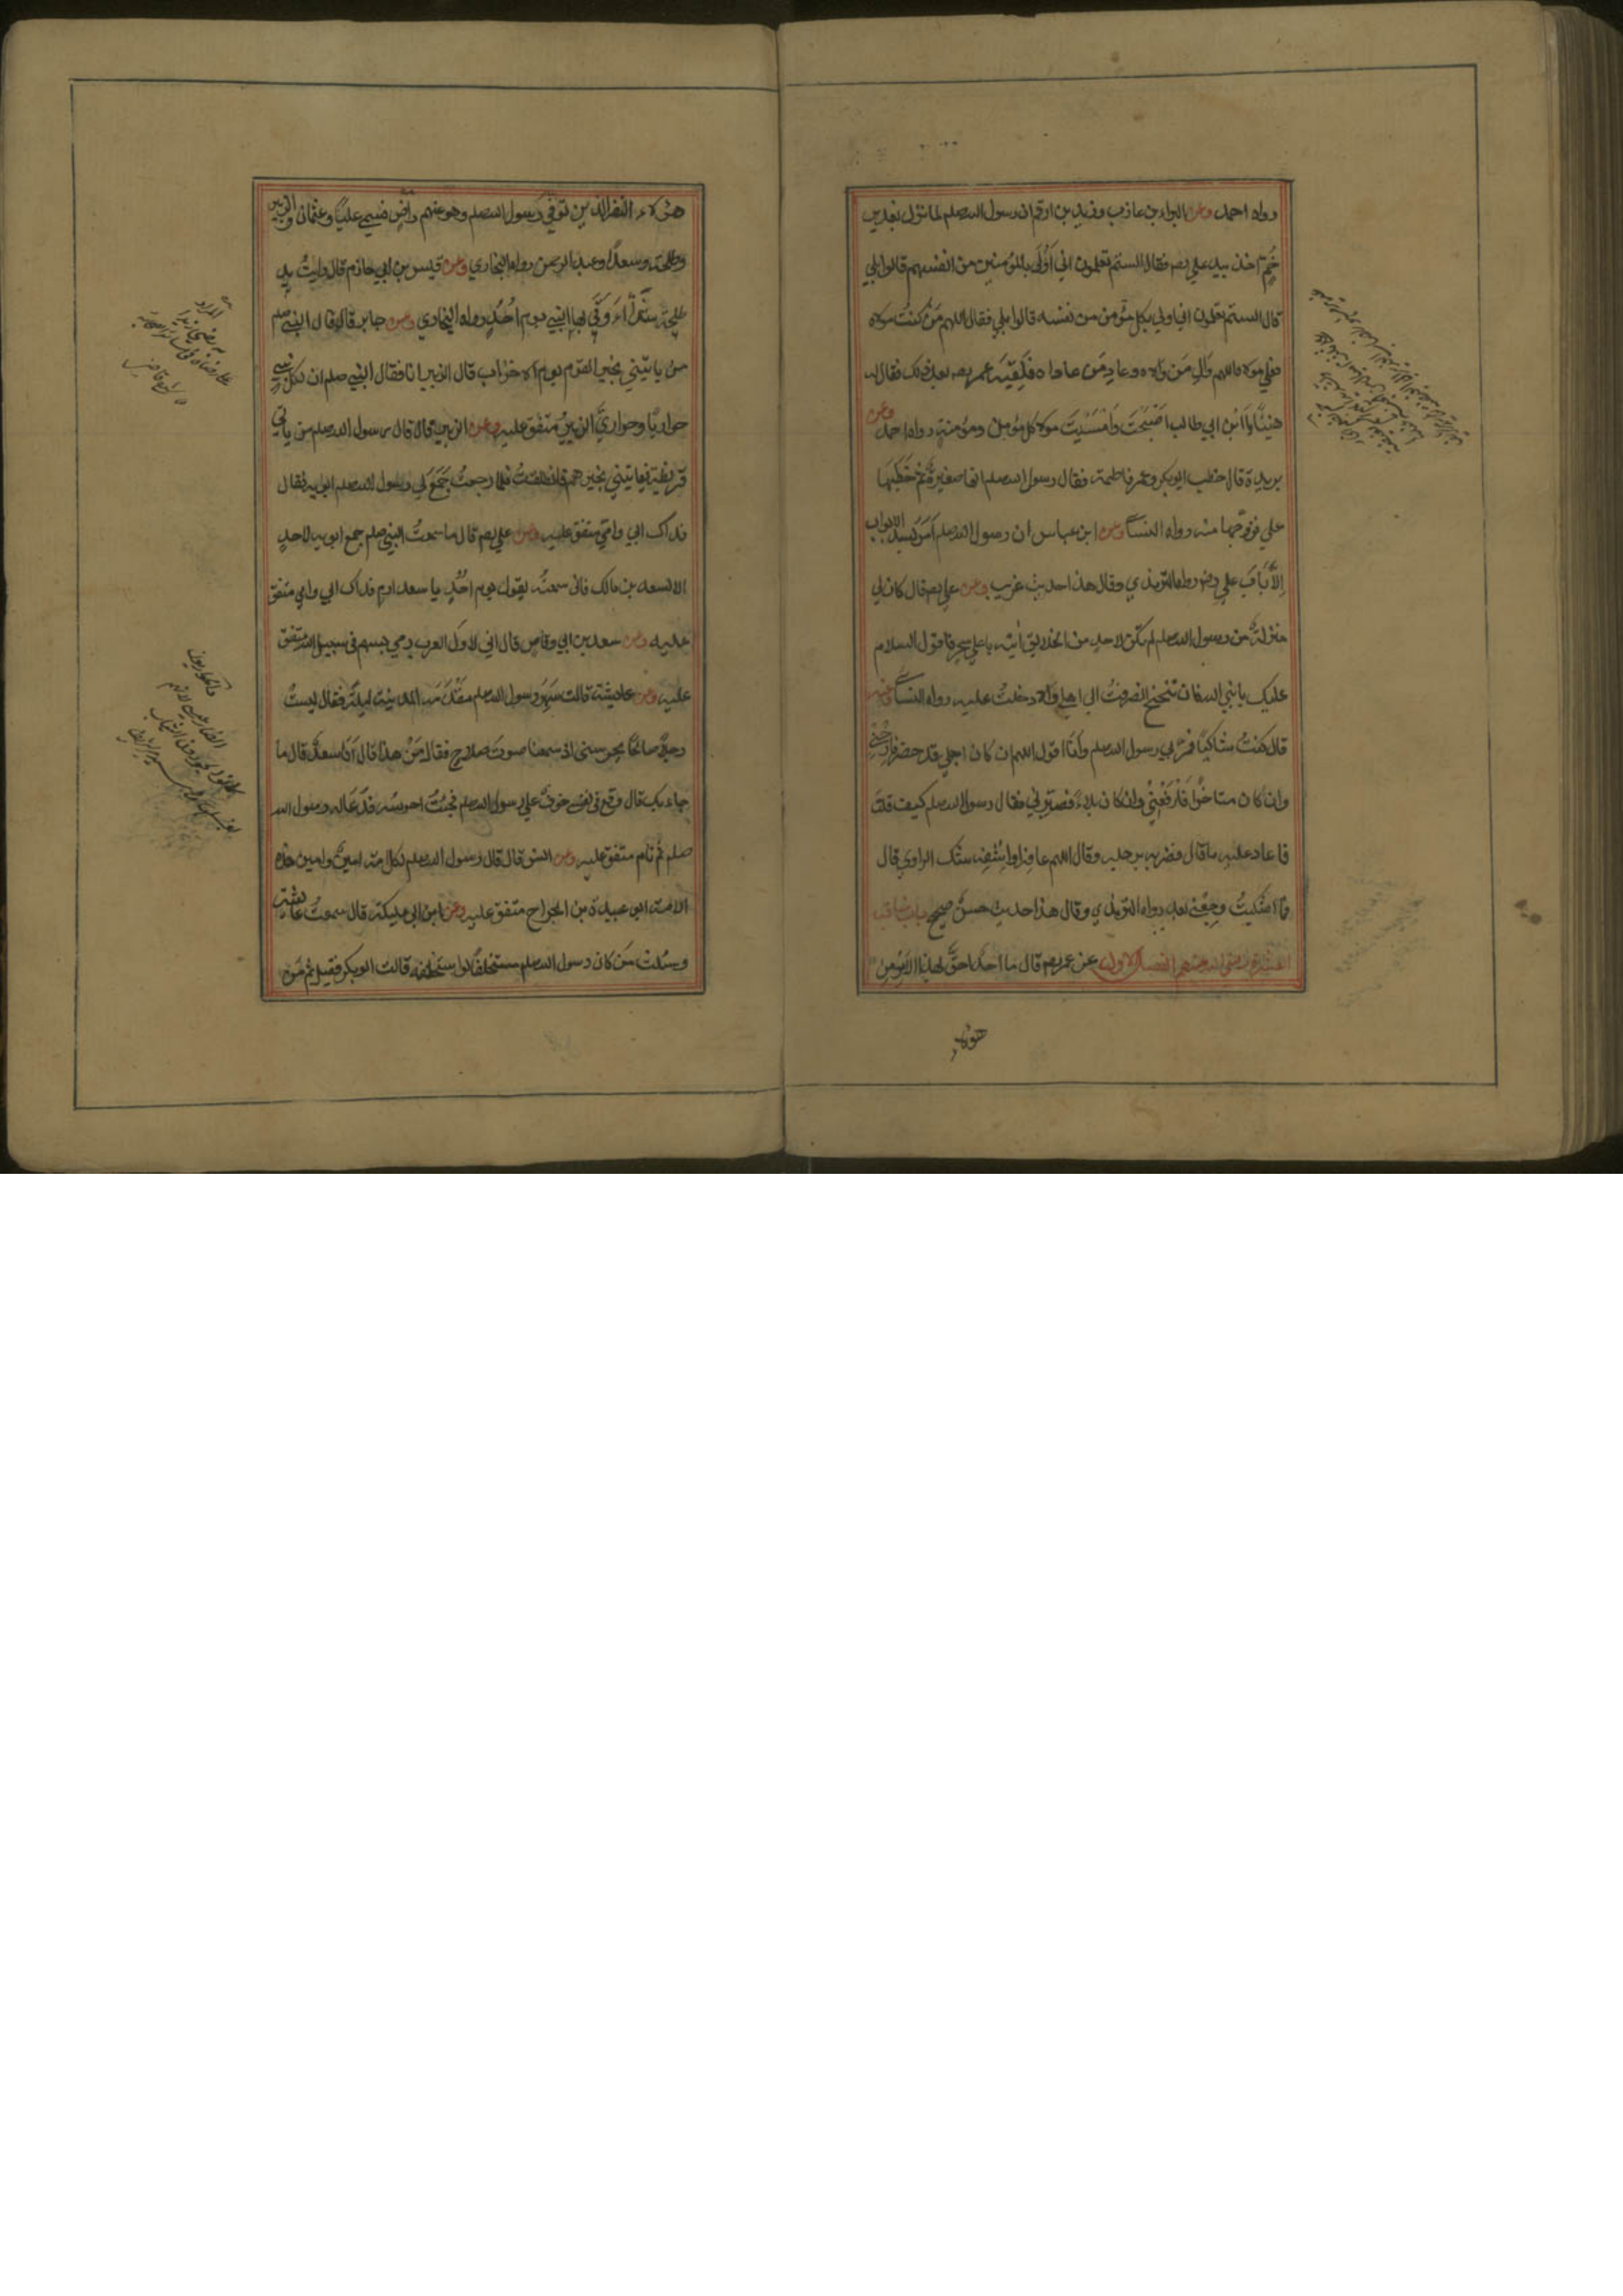 رواه احمد وعن البراء بن عازب وزيد بن ارقم ان رسول الله صلعم لما نزل بغدير
خُمٍّ اخذ بيد علي رضه فقال الستم تعلمون اني اَوْلَى بالمؤمنين من انفسهم قالوا بلي
قال الستم تعلمون اني اولي بكل مؤمن من نفسه قالوا بلي فقال اللهم مَن كنتُ مولاه
فعلي مولاه اللهم وَالِ مَن والاه وعادِ مَن عاداه فَلَقِيَه عمر رضه بعد ذلك فقال له
هنيئًا يا ابن ابي طالب اَصْبَحْتَ واَمْسَيْتَ مولا كل مؤمن ومؤمنة رواه احمد وعن
بريدة قال خطب ابوبكر وعمر فاطمة فقال رسول الله صلعم انها صغيرةٌ ثم خَطَبَها
علي فزوّجها منه رواه النسا وعن ابن عباس ان رسول الله صلعم اَمَرَ بسد الابواب
اِلَّا بَابَ علي رضه رواه الترمذي وقال هذا حديث غريب وعن علي رضه قال كان لي
منزلةٌ من رسول الله صلعم لم تكن لاحد من الخلايق اٰتيه باعلي سحر فاقول السلام
عليك يا نبي الله فان تنحنح انصرفتُ الي اهلي والا دخلتُ عليه رواه النسا وعنه
قال كنتُ شاكيًا فمرَّ بي رسول الله صلعم واَنَا اقول اللهم ان كان اجلي قد حضر فارحني
وان كان متاخرًا فَارْفَعْنِيْ وان كان بلاءً فصَبِّرني فقال رسول الله صلعم كيف قلت
فاعاد عليه ما قال فضربه برجله وقال اللهم عافه او اشفِه شك الراوي قال
فما اشتكيتُ وجعي بعد رواه الترمذي وقال هذا حديث حسنٌ صحيح باب مناقب
العشرة رضي الله عنهم الفصل الاول عن عمر رضه قال ما احدٌ احقَّ بهذا الامر من
هؤلاء
هؤلاء النفر الذين توفي رسول الله صلعم وهو عنهم راضٍ فسمي عليًا وعثمان والزبير
وطلحة وسعدًا وعبد الرحمن رواه البخاري وعن قيس بن ابي حازم قال رايتُ يد
طلحة شَلَّاءَ وَقَي بها النبي يوم اُحُدٍ رواه البخاري وعن جابر قال قال النبي صلعم
من ياتيني بخبر القوم يوم الاحزاب قال الزبير انا فقال النبي صلعم ان لكل نبي
حواريًا وحواريَّ الزبيرُ متفق عليه وعن الزبير قال قال رسول الله صلعم من ياتي
قريظة فياتيني بخبرهم فانطلقتُ فلما رجعتُ جَمَعَ لي رسول الله صلعم ابويه فقال
فداك ابي وامي متفق عليه وعن علي رضه قال ما سمعتُ النبي صلعم جمع ابويه لاحدٍ
الا لسعد بن مالك فاني سمعتُه يقول يوم اُحُدٍ يا سعد ارم فداك ابي وامي متفق
عليه وعن سعد بن ابي وقاص قال اني لاول العرب رمي بسهم في سبيل الله متفق
عليه وعن عايشة قالت سَهِرَ رسول الله صلعم مَقْدَمَه المدينة ليلةً فقال ليت
رجلًا صالحًا يحرسني اذ سمعنا صوتَ سلاح فقال مَنْ هذا قال اَنَا سعدٌ قال ما
جاء بك قال وقع في نفسي خوفٌ علي رسول الله صلعم فجئتُ احرسُه فدَعَا له رسول الله
صلعم ثم نام متفق عليه وعن انس قال قال رسول الله صلعم لكل امة امينٌ وامين هذه
الامة ابو عبيدة بن الجراح متفق عليه وعن ابن ابي مليكة قال سمعتُ عائشة
وسُئلت مَن كان رسول الله صلعم مستخلفًا لو استخلفه قالت ابوبكر فقيل ثم مَن